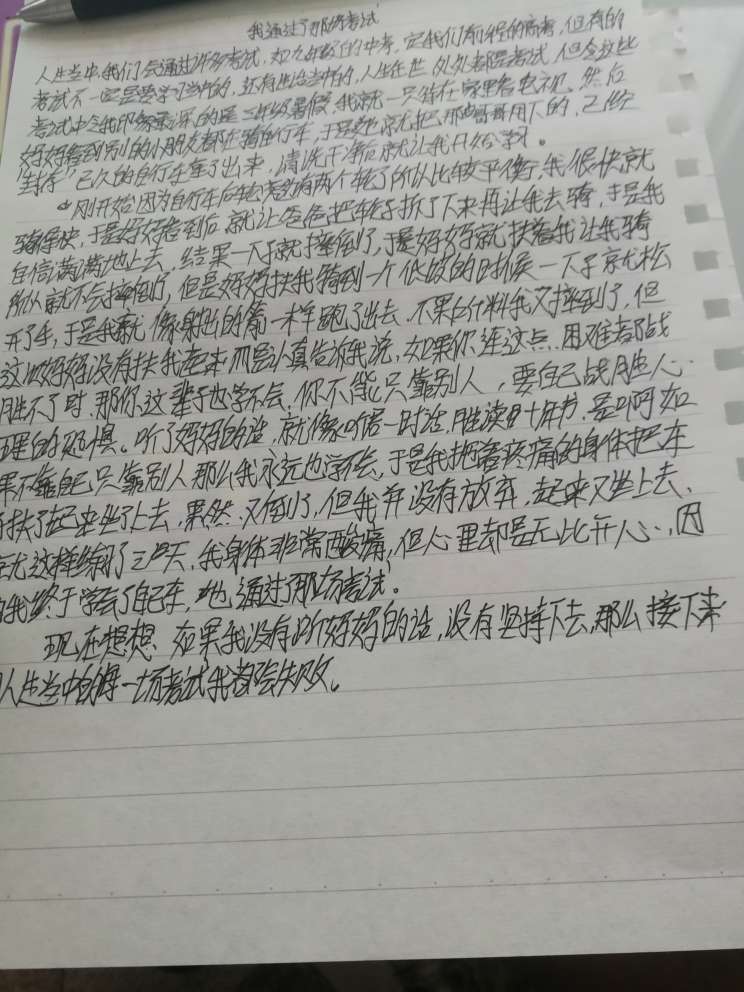 我通过了那场考试
人生当中,我们会通过许多考试,如九年级的中考,定我们前程的高考,但有的
考试不一定是要学习当中的,还有生活当中的,人生在世处处都是考试,但令这些
考试中令我印象最深的是三年级暑假,我就一只待在家里看电视,然后
妈妈看到别的小朋友都在骑自行车,于是她就把那哥哥用下的,已经
"封存"已久的自行车拿了出来,清洗干净后就让我开始学习。
刚开始因为自行车后轮旁有两个轮子所以比较平衡,我很快就
骑得快,于是妈妈看到后就让爸爸把轮子拆了下来再让我去骑,于是我
自信满满地上去,结果一下子就摔倒了,于是妈妈就扶着我让我骑
所以就不会摔倒了,但是妈妈扶我骑到一个低坡的时候一下子就松
开了手,于是我就像射出的箭一样跑了出去,不果所料我又摔到了,但
这次妈妈没有扶我起来而是认真告诉我说,如果你连这点困难都战
胜不了时,那你这辈子也学不会,你不能只靠别人,要自己战胜心
理的恐惧。听了妈妈的话,就像听君一时话,胜读十年书,是啊如
果不靠自己只靠别人那么我永远也学不会,于是我把着疼痛的身体把车
扶了起来坐了上去,果然又倒了,但我并没有放弃,起来又坐上去,
就这样练习了三四天,我身体非常酸痛,但心里却是无比开心,因
为我终于学会了自行车,也通过了那场考试。
现在想想如果我没有听妈妈的话,没有坚持下去,那么接下来
人生当中的每一场考试我都会失败。